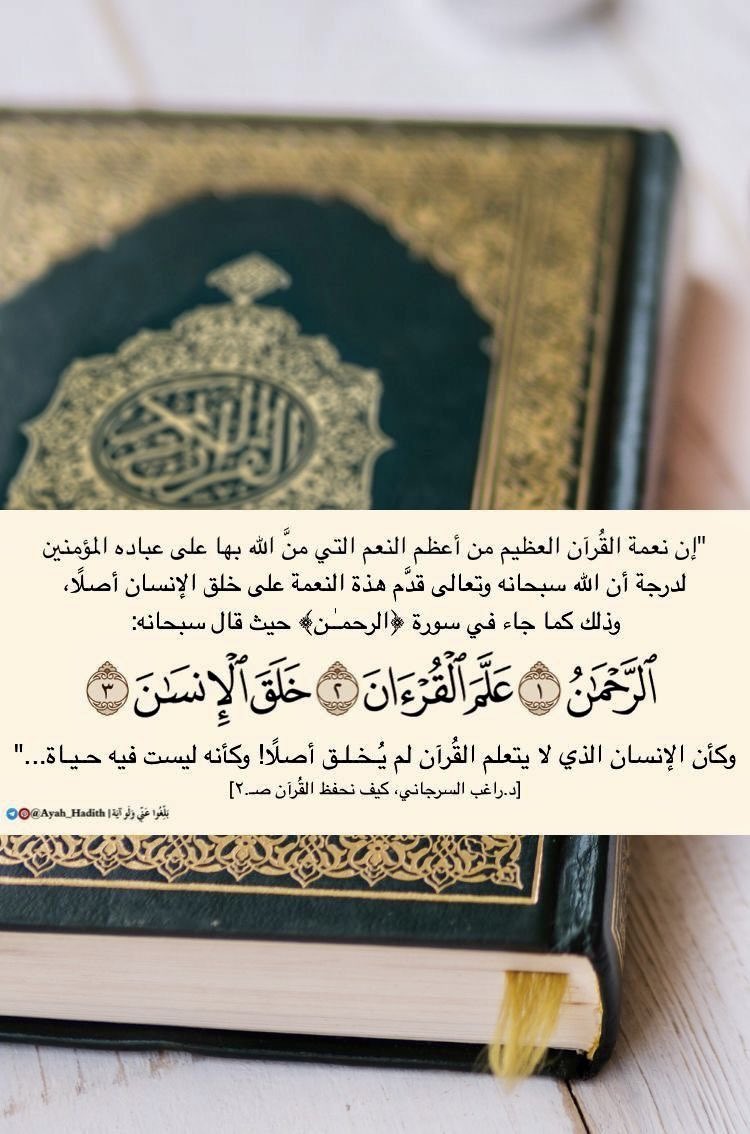 القرآن الكريم
"إن نعمة القُرآن العظيم من أعظم النعم التي منَّ الله بها على عباده المؤمنين
لدرجة أن الله سبحانه وتعالى قدَّم هذة النعمة على خلق الإنسان أصلًا،
وذلك كما جاء في سورة ﴿الرحمـٰن﴾ حيث قال سبحانه:
ٱلرَّحْمَـٰنُ ١ عَلَّمَ ٱلْقُرْءَانَ ٢ خَلَقَ ٱلْإِنسَـٰنَ ٣
وكأن الإنسان الذي لا يتعلم القُرآن لم يُـخـلـق أصلًا! وكأنه ليست فيه حـيـاة..."
[د.راغب السرجاني، كيف نحفظ القُرآن صـ.٢]
@Ayah_Hadith | بَلِّغُوا عَنِّي وَلَو آيَة